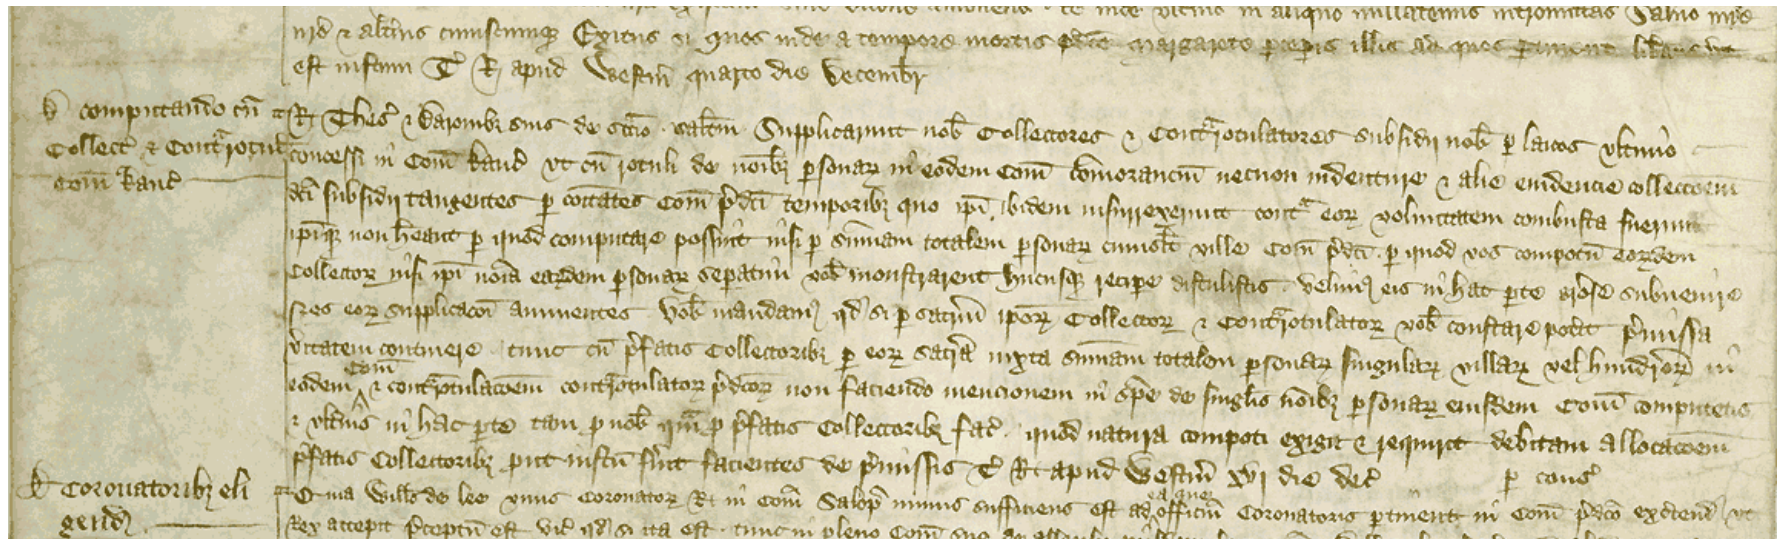 nrd & alt'ius cuiuscumq Exitus si quos inde a tempore mortis pdce Margarete pcepis illis ad quos ptinent lib'ans ut
est iustum T' R apud Westm' quarto die Decembr'
D' computando cu' Collect' & Contr'arotul' Com' Kanc'
R' Thes' & Baronibz suis de scc'io salt'm Supplicarunt nob' Collectores & Contr'arotulatores subsidii nob' p laicos ultimo
concessi in Com' Kanc' ut cu' rotuli de no'ibz psonar' in eodem Com' com'orancium necnon indenture & alie evidencie collecco'em
d'ci subsidii tangentes p co'itates Com' p'dc'i temporibz quo ip'i ibidem insurrexerunt contra eor' voluntatem combusta fuerunt
ip'iq non h'eant p quod computare possint nisi p summam totalem psonar' cuiusl't ville Com' p'dc'i p quod vos compotu' eordem
Collector' nisi ip'i no'ia eardem psonar' sepatim vob' monstrarent hucusq recipe distulistis velimus eis in hac pte gr'ose subvenire
eor' supplicac'oi annuentes vob' mandam' qd' si p sacr'm ip'or' Collector' & Contr'arotulator' vob' constare pot'it p'missa
v'itatem continere tunc cu' p'fatis Collectoribz p eor' sacr'a iuxta summam totalem psonar' singular' villar' vel hundredor' in
eodem Com' & contr'arotulaco'em contr'arotulator' p'dc'or' non faciendo mencionem in sp'e de singlis no'ibz psonar' eiusdem Com' computetis
& ult'ius in hac pte tam p nob' qua'm p p'fatis Collectoribz fac' quod natura compoti exigit & requirit debitam allocaco'em
p'fatis Collectoribz put iustu' fu'it facientes de p'missis T' R' apud Westm' xvj die Dec' p cons'
D' Coronatoribz eligend'
Quia Will's de Lee unus Coronator' R' in Com' Salop' minus sufficiens est ad ea que officiu' Coronatoris ptinent in Com' p'dc'o exc'end' ut
Rex accepit p'ceptu' est vic' qd' si ita est tunc in pleno Com' suo